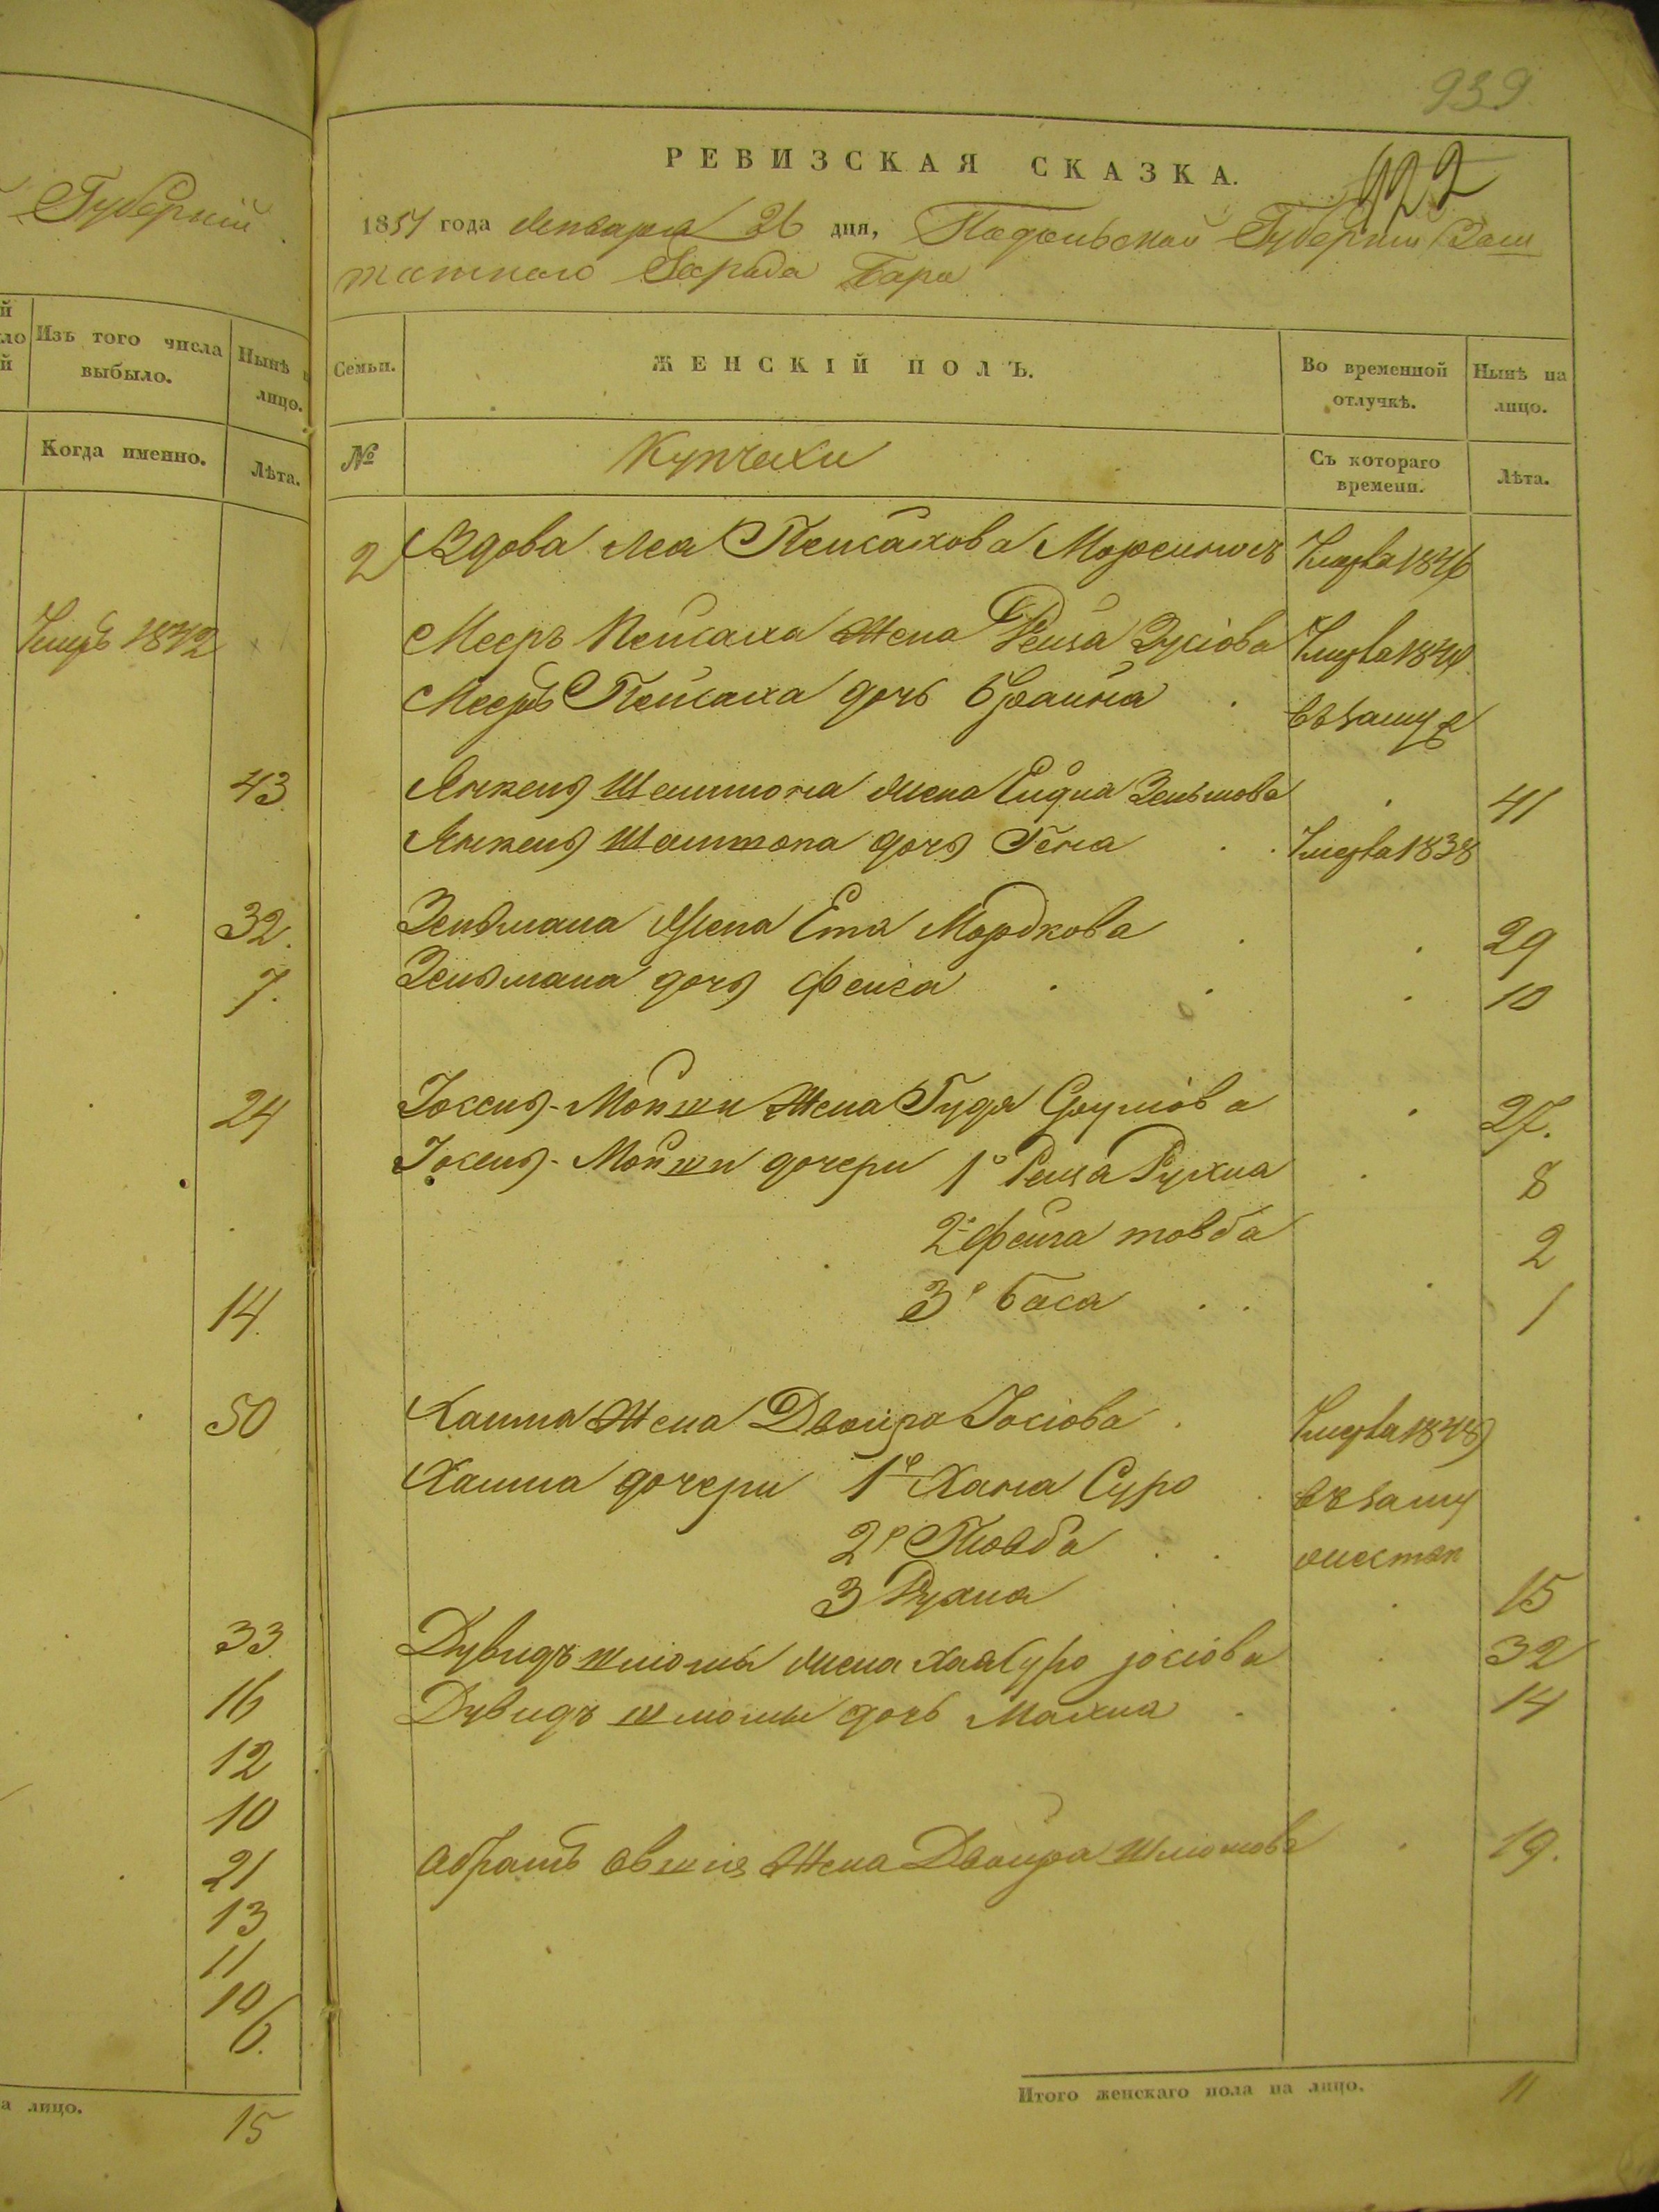 Губерній
й
ло
й
Изъ того числа
выбыло.
Нынѣ н
лицо.
Когда именно.
Лѣта.
Умеръ 1842
43
32.
7.
24
14.
50
33.
16
12
10
21
13
11
10
6.
а лицо.
15
939
РЕВИЗСКАЯ СКАЗКА.
922
1851 года января 26 дня, Подольской Губерніи Заш
татнаго Города Бара
Семьи.
ЖЕНСКІЙ ПОЛЪ.
Во временной
отлучкѣ.
Нынѣ на
лицо.
№
Купчихи
Съ котораго
времени.
Лѣта.
2 Вдова Леа Пейсахова умерла 1846
Мееръ Пейсаха жена Рейза Зусіова умерла 1844
Мееръ Пейсаха дочь Брайна взамуже
Янкель жена Ейдля Зельмова 41
Янкель дочь Гена умерла 1838
Зельмана жена Ета Мордкова 29
Зельмана дочь Фейга 10
Іосель-Мошки жена Гудя Сруліова 27.
Іосель-Мошки дочери 1я Рейза Рухля 8
2я Фейга товба 2
3я баса 1
Хаима жена Двойра Іосіова умерла 1848
Хаима дочери 1я Хана Сура взаму
2я Товба
3 Рухля 15
Дувидъ шліомы жена хая Сура іосіова 32
Дувидъ шліомы дочь Малка 14
Абрамъ Овшія жена Двойра Шліомова 19.
Итого женскаго пола на лицо. 11